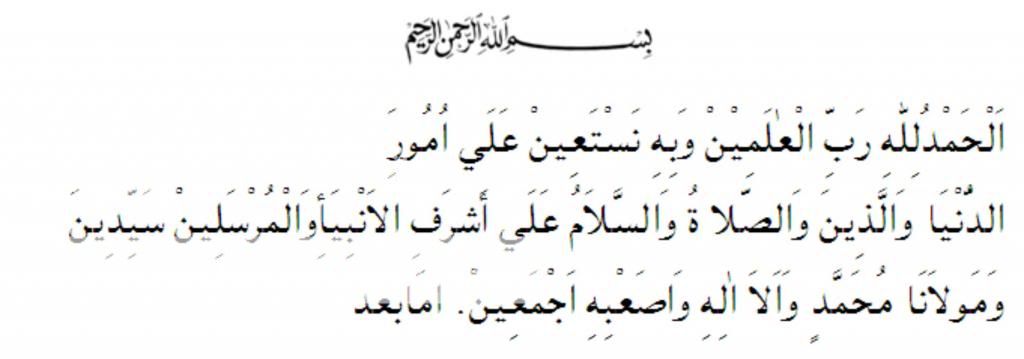 بِسْمِ اللهِ الرَّحْمٰنِ الرَّحِيْمِ
اَلْحَمْدُلِلّٰهِ رَبِّ الْعٰلَمِيْنْ وَبِهِ نَسْتَعِينْ عَلَي اُمُورِ
الدُّنْيَا وَالَّذِينَ وَالصَّلا ةُ وَالسَّلاَمُ عَلَي أَشرَفِ الاَنْبِيَأِوَالْمُرْسَلِينْ سَيِّدِينَ
وَمَولاَنَا مُحَمَّدٍ وَاَلاَ اٰلِهِ وَاصَعْبِهِ اَجْمَعِينْ. امابعد